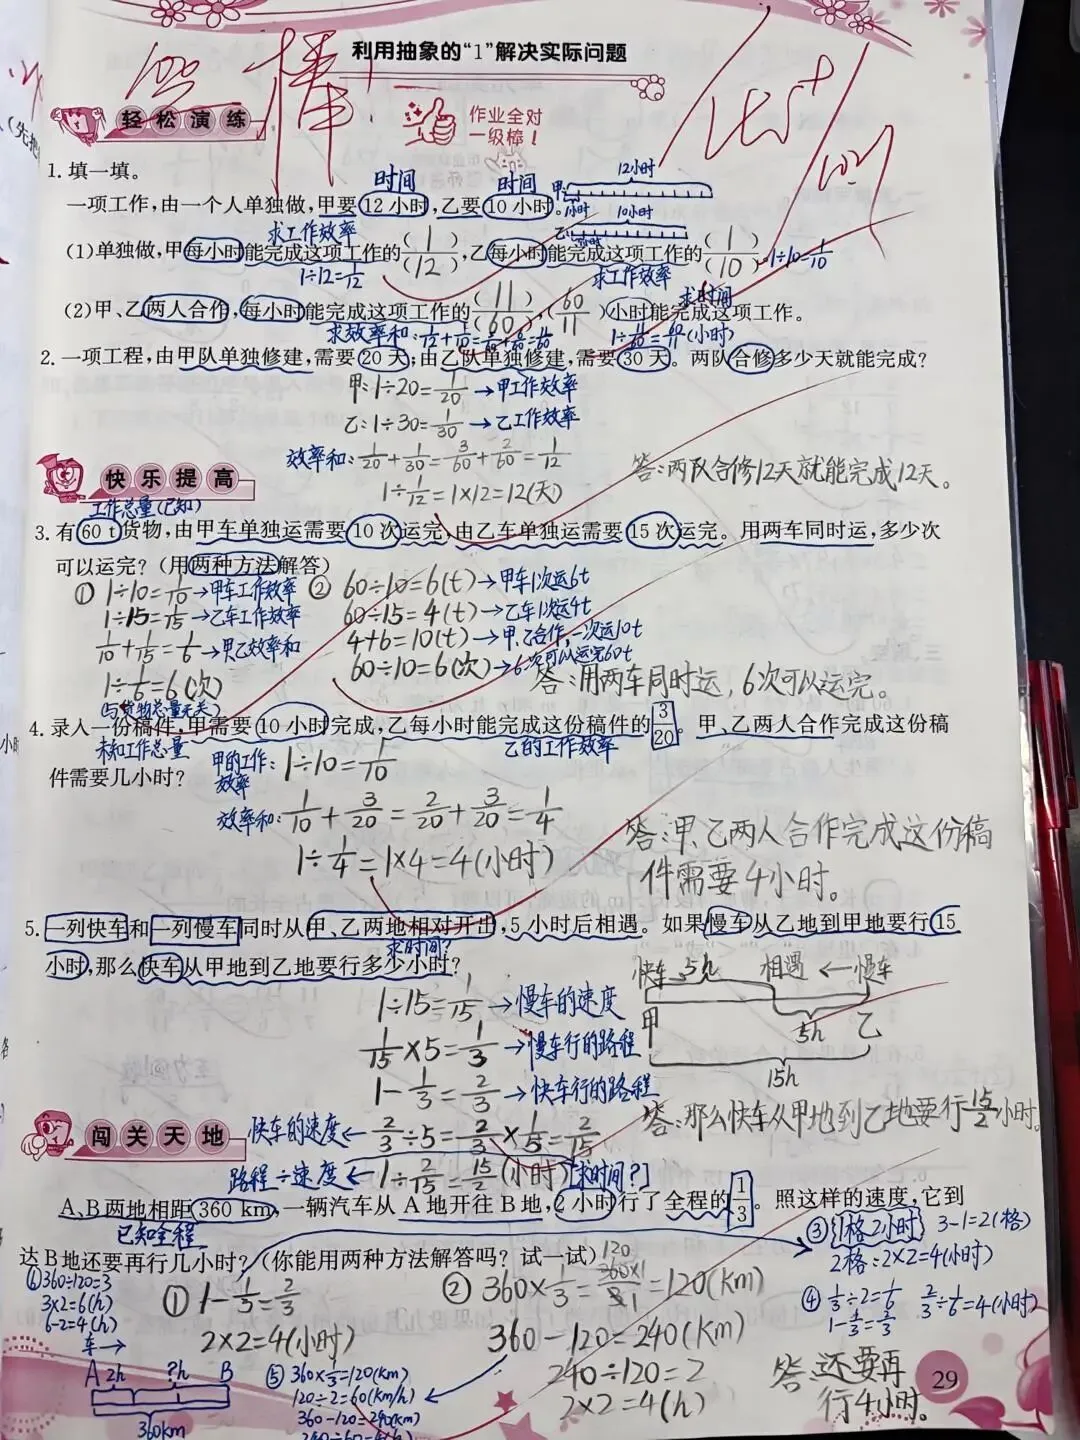 利用抽象的“1”解决实际问题
棒
优+
轻松演练
作业全对
一级棒！
1. 填一填。
时间 时间
12小时
一项工作，由一个人单独做，甲要12小时，乙要10小时。
甲: 1小时
乙: 10小时
求工作效率
(1)单独做，甲每小时能完成这项工作的(1)/(12)，乙每小时能完成这项工作的(1)/(10)。1÷10=1/10
1÷12=1/12 求工作效率
求时间
(2)甲、乙两人合作，每小时能完成这项工作的(11)/(60)，(60/11)小时能完成这项工作。
求效率和:1/12+1/10=5/60+6/60=11/60 1÷11/60=60/11(小时)
2. 一项工程，由甲队单独修建，需要20天；由乙队单独修建，需要30天。两队合修多少天就能完成？
甲:1÷20=1/20→甲工作效率
乙:1÷30=1/30→乙工作效率
效率和:1/20+1/30=3/60+2/60=1/12
1÷1/12=1×12=12(天)
答:两队合修12天就能完成12天。
快乐提高
工作总量(已知)
3. 有60 t货物，由甲车单独运需要10次运完，由乙车单独运需要15次运完。用两车同时运，多少次
可以运完？(用两种方法解答)
① 1÷10=1/10→甲车工作效率
1÷15=1/15→乙车工作效率
1/10+1/15=1/6→甲乙效率和
1÷1/6=6(次)
(与货物总量无关)
② 60÷10=6(t)→甲车1次运6t
60÷15=4(t)→乙车1次运4t
4+6=10(t)→甲、乙合作,一次运10t
60÷10=6(次)→6次可以运完60t
答:用两车同时运，6次可以运完。
4. 录入一份稿件，甲需要10小时完成，乙每小时能完成这份稿件的3/20。甲、乙两人合作完成这份稿
未知工作总量 乙的工作效率
件需要几小时？
甲的工作效率: 1÷10=1/10
效率和:1/10+3/20=2/20+3/20=1/4
1÷1/4=1×4=4(小时)
答:甲、乙两人合作完成这份稿
件需要4小时。
5. 一列快车和一列慢车同时从甲、乙两地相对开出，5小时后相遇。如果慢车从乙地到甲地要行15
求时间?
小时，那么快车从甲地到乙地要行多少小时？
快车 5h 相遇 ←慢车
甲 5h 乙
15h
1÷15=1/15→慢车的速度
1/15×5=1/3→慢车行的路程
1-1/3=2/3→快车行的路程
快车的速度←2/3÷5=2/3×1/5=2/15
路程÷速度←1÷2/15=15/2(小时)[求时间?]
答:那么快车从甲地到乙地要行15/2小时。
闯关天地
A、B两地相距360 km，一辆汽车从A地开往B地，2小时行了全程的1/3。照这样的速度，它到
已知全程
达B地还要再行几小时？(你能用两种方法解答吗？试一试)
① 1-1/3=2/3
2×2=4(小时)
② 360×1/3=360×1/3=120(km)
360-120=240(km)
240÷120=2
2×2=4(h)
③ {1格2小时} 3-1=2(格)
2格:2×2=4(小时)
④ 1/3÷2=1/6 2/3÷1/6=4(小时)
1-1/3=2/3
⑤ 360×1/3=120(km)
120÷2=60(km/h)
360-120=240(km)
240÷60=4(h)
⑥ 360÷120=3
3×2=6(h)
6-2=4(h)
车→
A 2h ?h B
360km
答 还要再
行4小时。
29